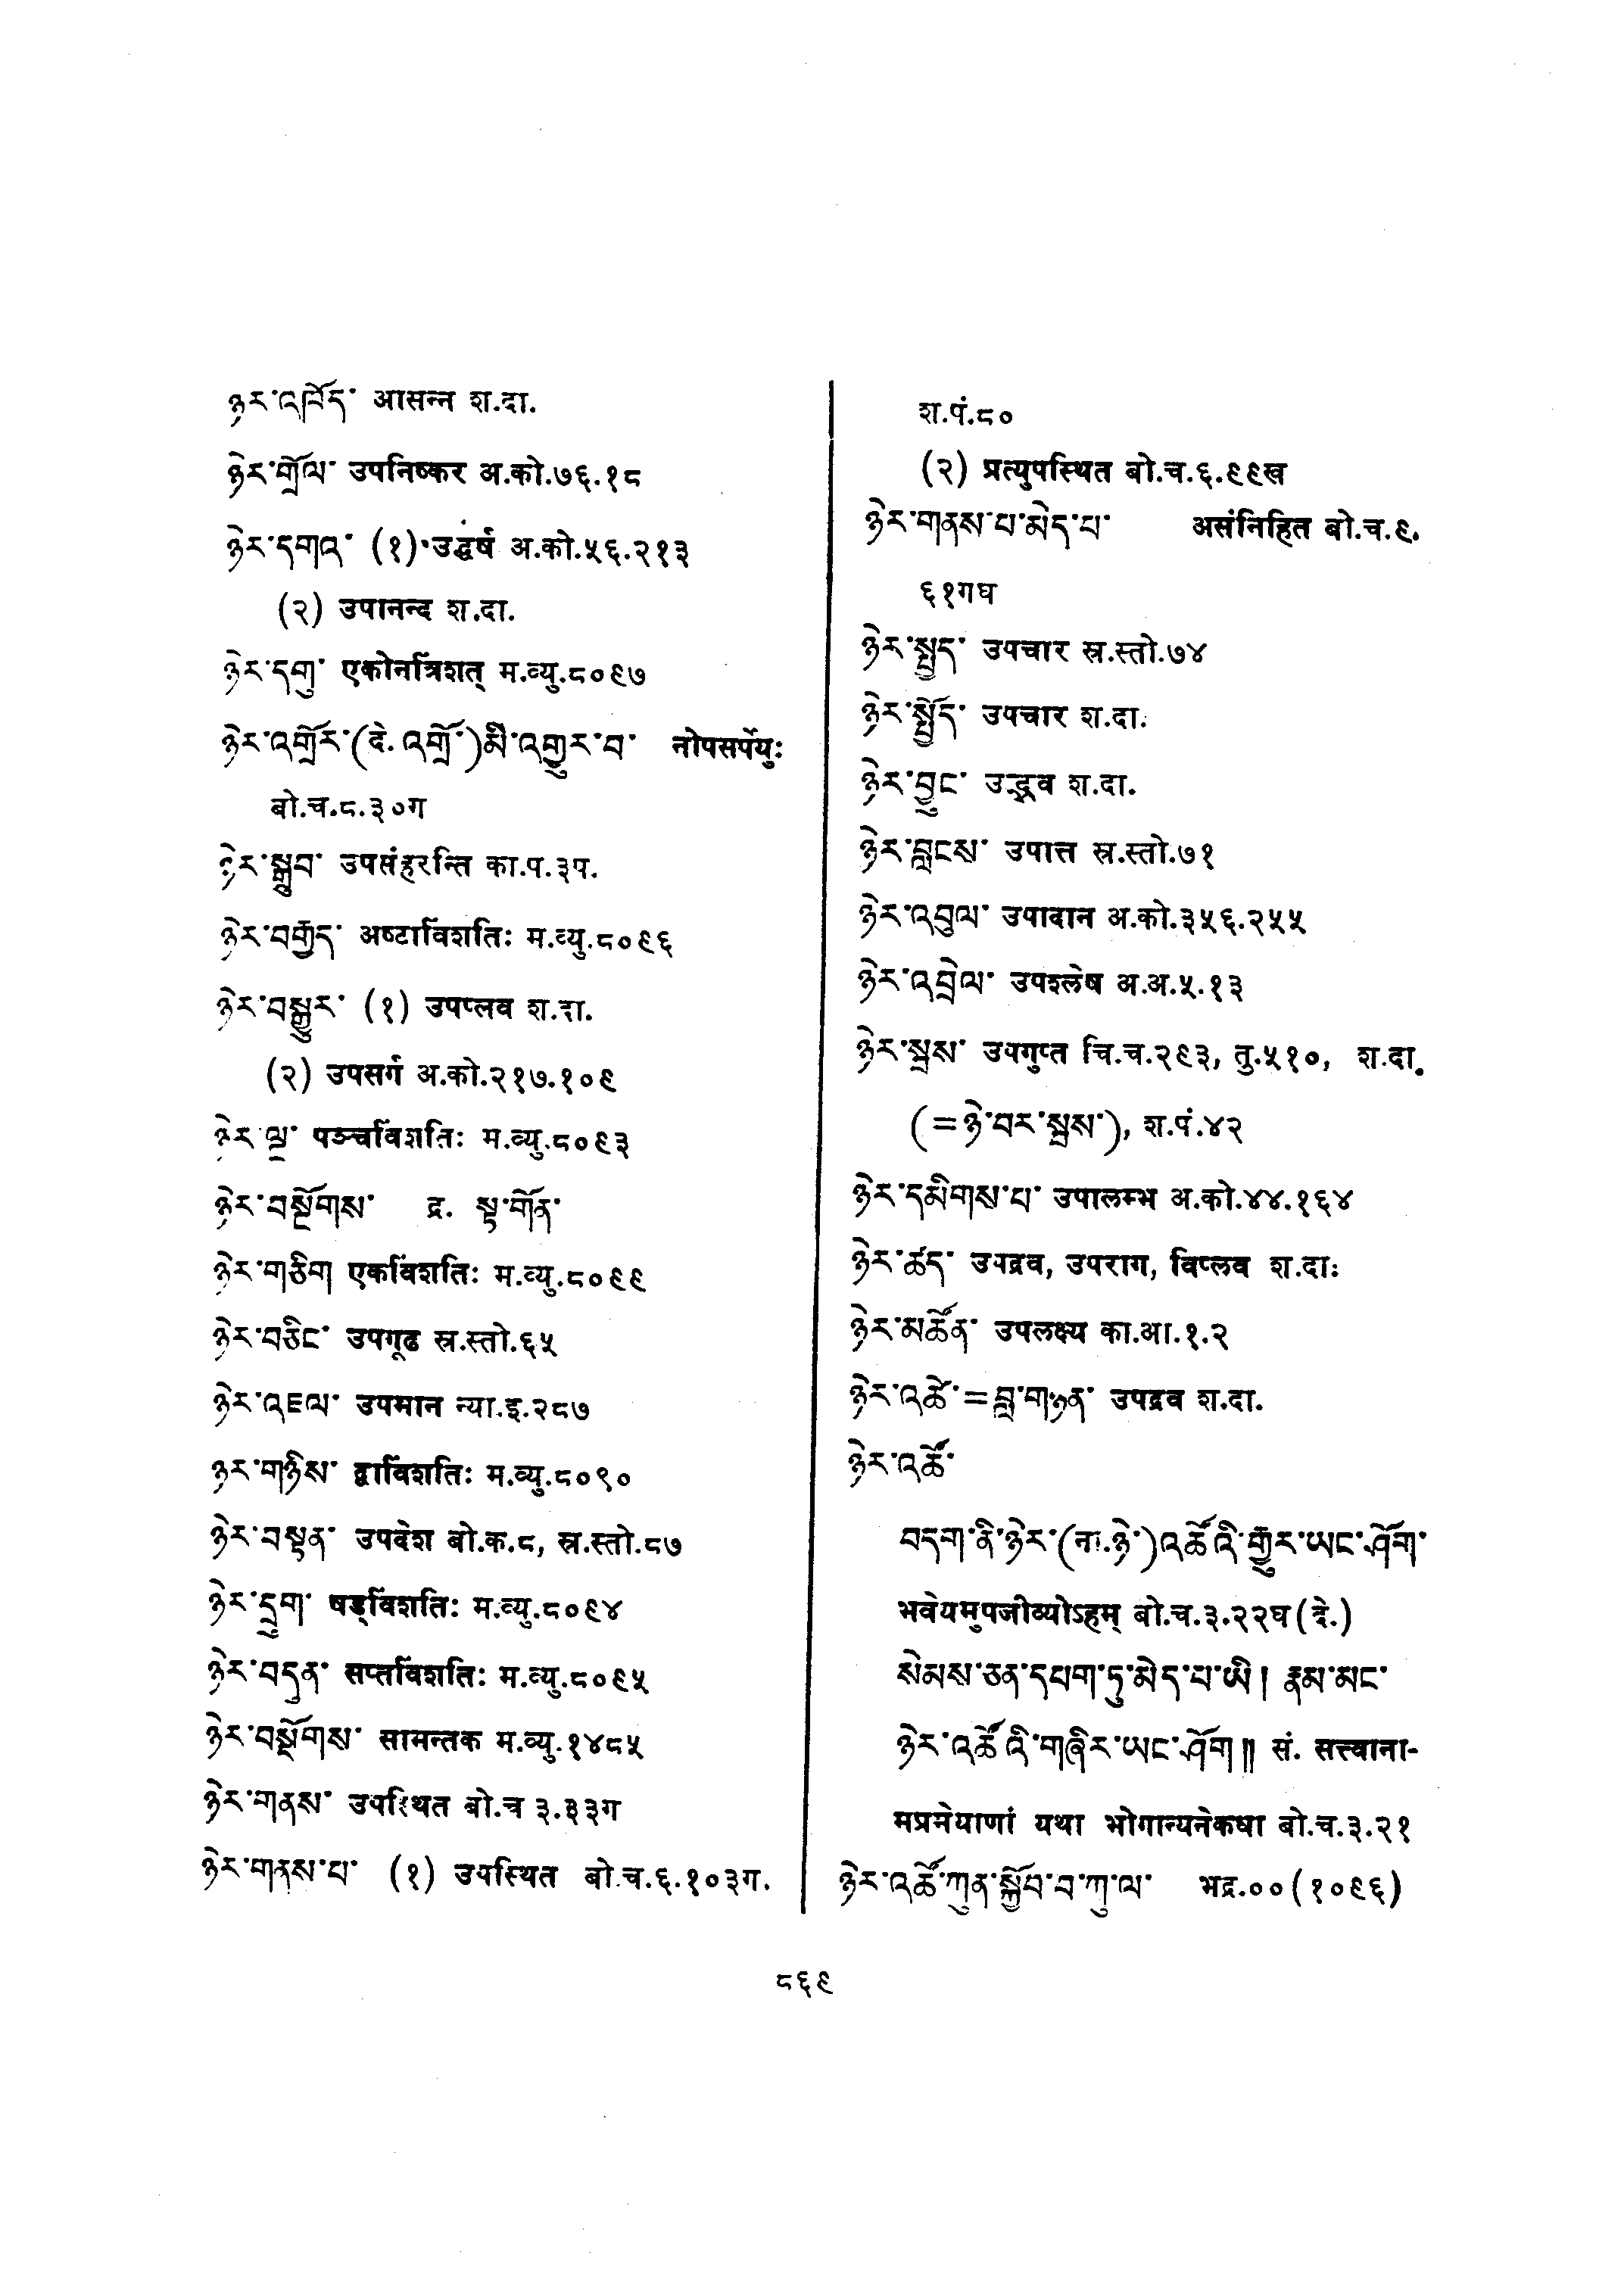 ཉེར་འཁོད་ आसन्न श.दा.
ཉེར་གྲོལ་ उपनिष्कर अ.को.७६.१८
ཉེར་དགའ་ (१) उद्धर्ष अ.को.५६.२१३
(२) उपानन्द श.दा.
ཉེར་དགུ་ एकोनत्रिंशत् म.व्यु.८०९७
ཉེར་འགྲོར་(दे. འགྲོ་)མི་འགྱུར་བ་ नोपसर्पेयुः
बो.च.८.३०ग
ཉེར་སྒྲུབ་ उपसंहरन्ति का.प.३प.
ཉེར་བརྒྱད་ अष्टाविंशतिः म.व्यु.८०९६
ཉེར་བསྒྱུར་ (१) उपप्लव श.दा.
(२) उपसर्ग अ.को.२१७.१०९
ཉེར་ལྔ་ पञ्चविंशतिः म.व्यु.८०९३
ཉེར་བསྔོགས་ द्र. སྟ་གོན་
ཉེར་གཅིག एकविंशतिः म.व्यु.८०९९
ཉེར་བཅིང་ उपगूढ स्र.स्तो.६५
ཉེར་འཇལ་ उपमान न्या.इ.२८७
ཉེར་གཉིས་ द्वाविंशतिः म.व्यु.८०९०
ཉེར་བསྟན་ उपदेश बो.क.८, स्र.स्तो.८७
ཉེར་དྲུག་ षड्विंशतिः म.व्यु.८०९४
ཉེར་བདུན་ सप्तविंशतिः म.व्यु.८०९५
ཉེར་བསྡོགས་ सामन्तक म.व्यु.१४८५
ཉེར་གནས་ उपस्थित बो.च ३.३३ग
ཉེར་གནས་པ་ (१) उपस्थित बो.च.६.१०३ग.
श.पं.८०
(२) प्रत्युपस्थित बो.च.६.९९ख
ཉེར་གནས་པ་མེད་པ་ असंनिहित बो.च.९.
६१गघ
ཉེར་སྤྱད་ उपचार स्र.स्तो.७४
ཉེར་སྤྱོད་ उपचार श.दा.
ཉེར་བྱུང་ उद्भव श.दा.
ཉེར་བླངས་ उपात्त स्र.स्तो.७१
ཉེར་འབུལ་ उपादान अ.को.३५६.२५५
ཉེར་འབྲེལ་ उपश्लेष अ.अ.५.१३
ཉེར་སྦས་ उपगुप्त चि.च.२९३, तु.५१०, श.दा.
(=ཉེ་བར་སྦས་), श.पं.४२
ཉེར་དམིགས་པ་ उपालम्भ अ.को.४४.१६४
ཉེར་ཚད་ उपद्रव, उपराग, विप्लव श.दा:
ཉེར་མཚོན་ उपलक्ष्य का.आ.१.२
ཉེར་འཚེ་=བླ་གཉན་ उपद्रव श.दा.
ཉེར་འཚོ་
བདག་ནི་ཉེར་(ना.ཉེ་)འཚོའི་གྱུར་ཡང་ཤོག་
भवेयमुपजीव्योऽहम् बो.च.३.२२घ(दे.)
སེམས་ཅན་དཔག་ཏུ་མེད་པ་ཡི། རྣམ་མང་
ཉེར་འཚོའི་གཞིར་ཡང་ཤོག༎ सं. सत्त्वाना-
मप्रमेयाणां यथा भोगान्यनेकधा बो.च.३.२१
ཉེར་འཚོ་ཀུན་སྐྱོབ་བ་ཀུ་ལ་ भद्र.००(१०९६)
८६९